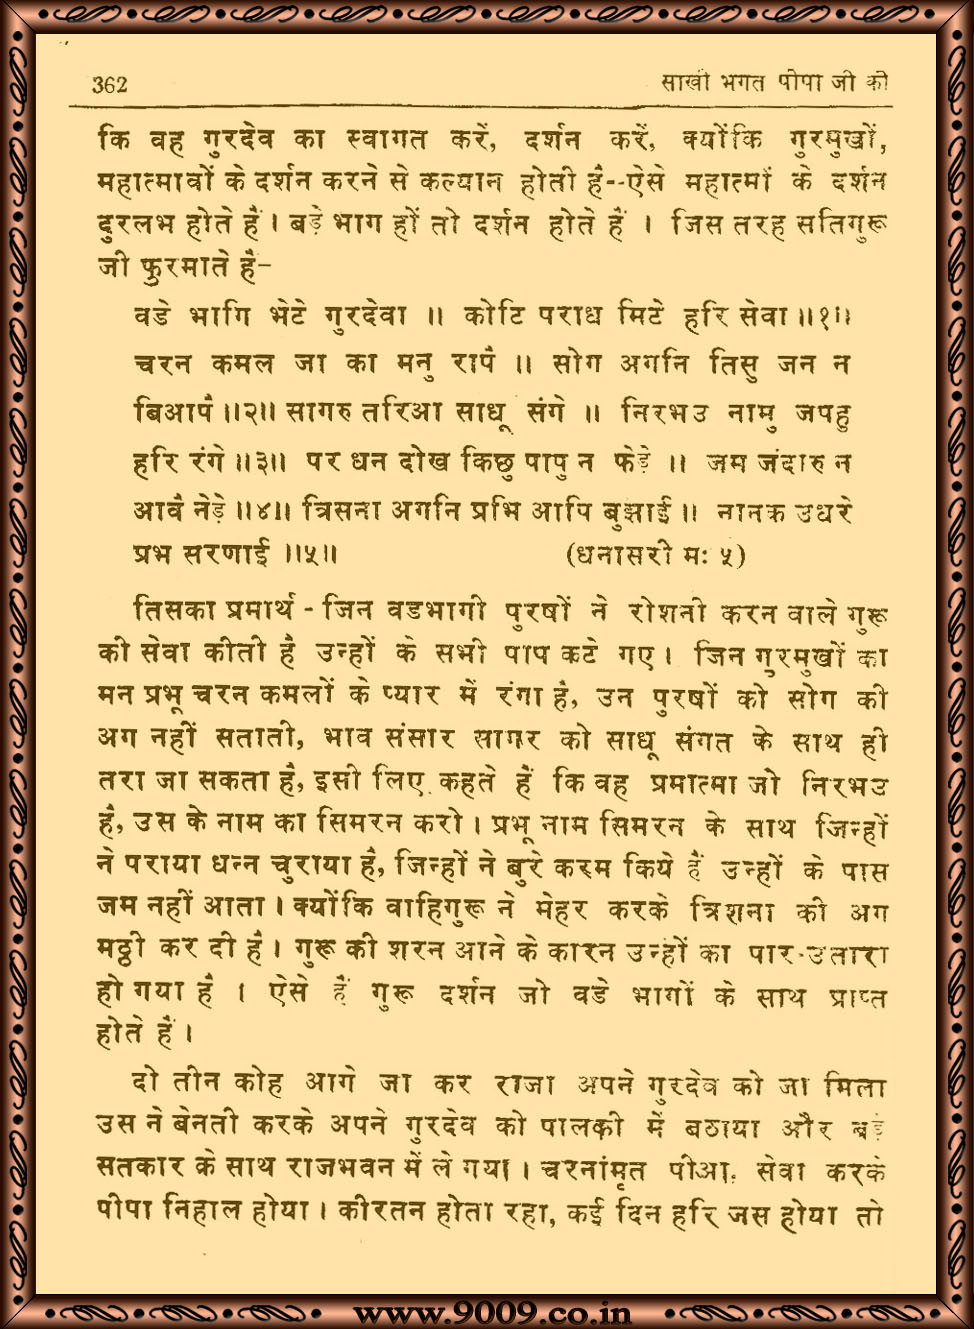 362 साखी भगत पीपा जी की
कि वह गुरदेव का स्वागत करें, दर्शन करें, क्योंकि गुरमुखों,
महात्मावों के दर्शन करने से कल्यान होती है--ऐसे महात्मां के दर्शन
दुरलभ होते हैं। बड़े भाग हों तो दर्शन होते हैं । जिस तरह सतिगुरू
जी फुरमाते है-
वडे भागि भेटे गुरदेवा ॥ कोटि पराध मिटे हरि सेवा॥१॥
चरन कमल जा का मनु रापै ॥ सोग अगनि तिसु जन न
बिआपै॥२॥ सागरु तरिआ साधू संगे ॥ निरभउ नामु जपहु
हरि रंगे॥३॥ पर धन दोख किछु पापु न फेड़े ॥ जम जंदारु न
आवै नेड़े॥४॥ त्रिसना अगनि प्रभि आपि बुझाई॥ नानक उधरे
प्रभ सरणाई॥५॥ (धनासरी म: ५)
तिसका प्रमार्थ - जिन वडभागी पुरषों ने रोशनी करन वाले गुरू
की सेवा कीती है उन्हों के सभी पाप कटे गए। जिन गुरमुखों का
मन प्रभू चरन कमलों के प्यार में रंगा है, उन पुरषों को सोग की
अग नहीं सताती, भाव संसार सागर को साधू संगत के साथ ही
तरा जा सकता है, इसी लिए कहते हैं कि वह प्रमात्मा जो निरभउ
है, उस के नाम का सिमरन करो। प्रभू नाम सिमरन के साथ जिन्हों
ने पराया धन्न चुराया है, जिन्हों ने बुरे करम किये हैं उन्हों के पास
जम नहीं आता। क्योंकि वाहिगुरू ने मेहर करके त्रिशना की अग
मठ्ठी कर दी है। गुरू की शरन आने के कारन उन्हों का पार-उतारा
हो गया है । ऐसे हैं गुरू दर्शन जो वडे भागों के साथ प्राप्त
होते हैं।
दो तीन कोह आगे जा कर राजा अपने गुरदेव को जा मिला
उस ने बेनती करके अपने गुरदेव को पालकी में बठाया और बड़े
सतकार के साथ राजभवन में ले गया। चरनांमृत पीआ, सेवा करके
पीपा निहाल होया। कीरतन होता रहा, कई दिन हरि जस होया तो
www.9009.co.in